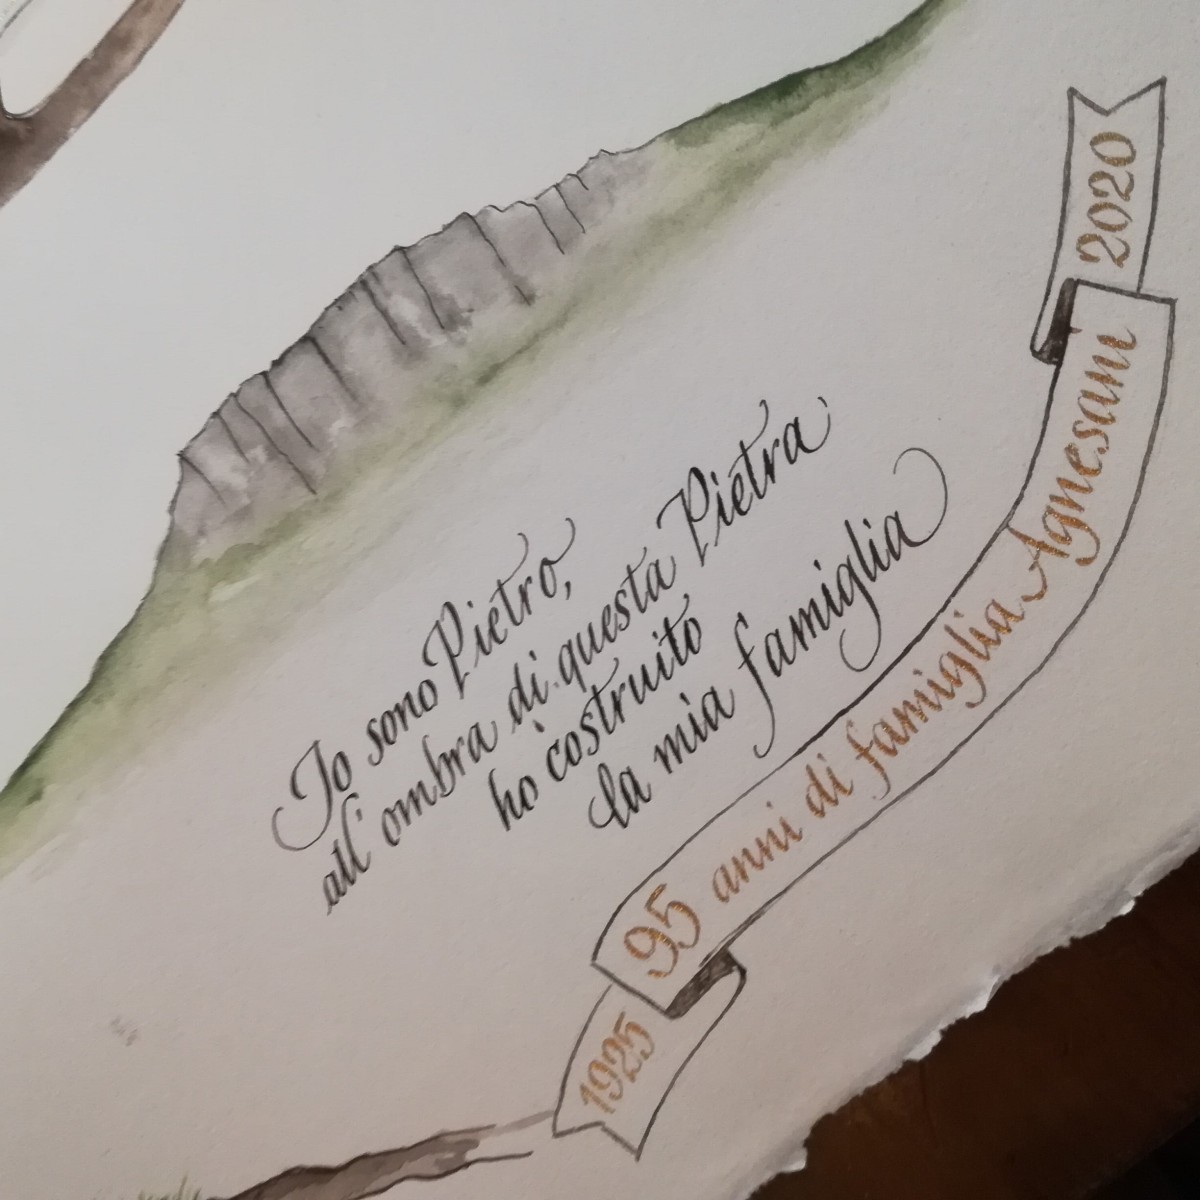 Io sono Pietro,
all'ombra di questa Pietra
ho costruito
la mia famiglia
1925
95 anni di famiglia Agnesani
2020